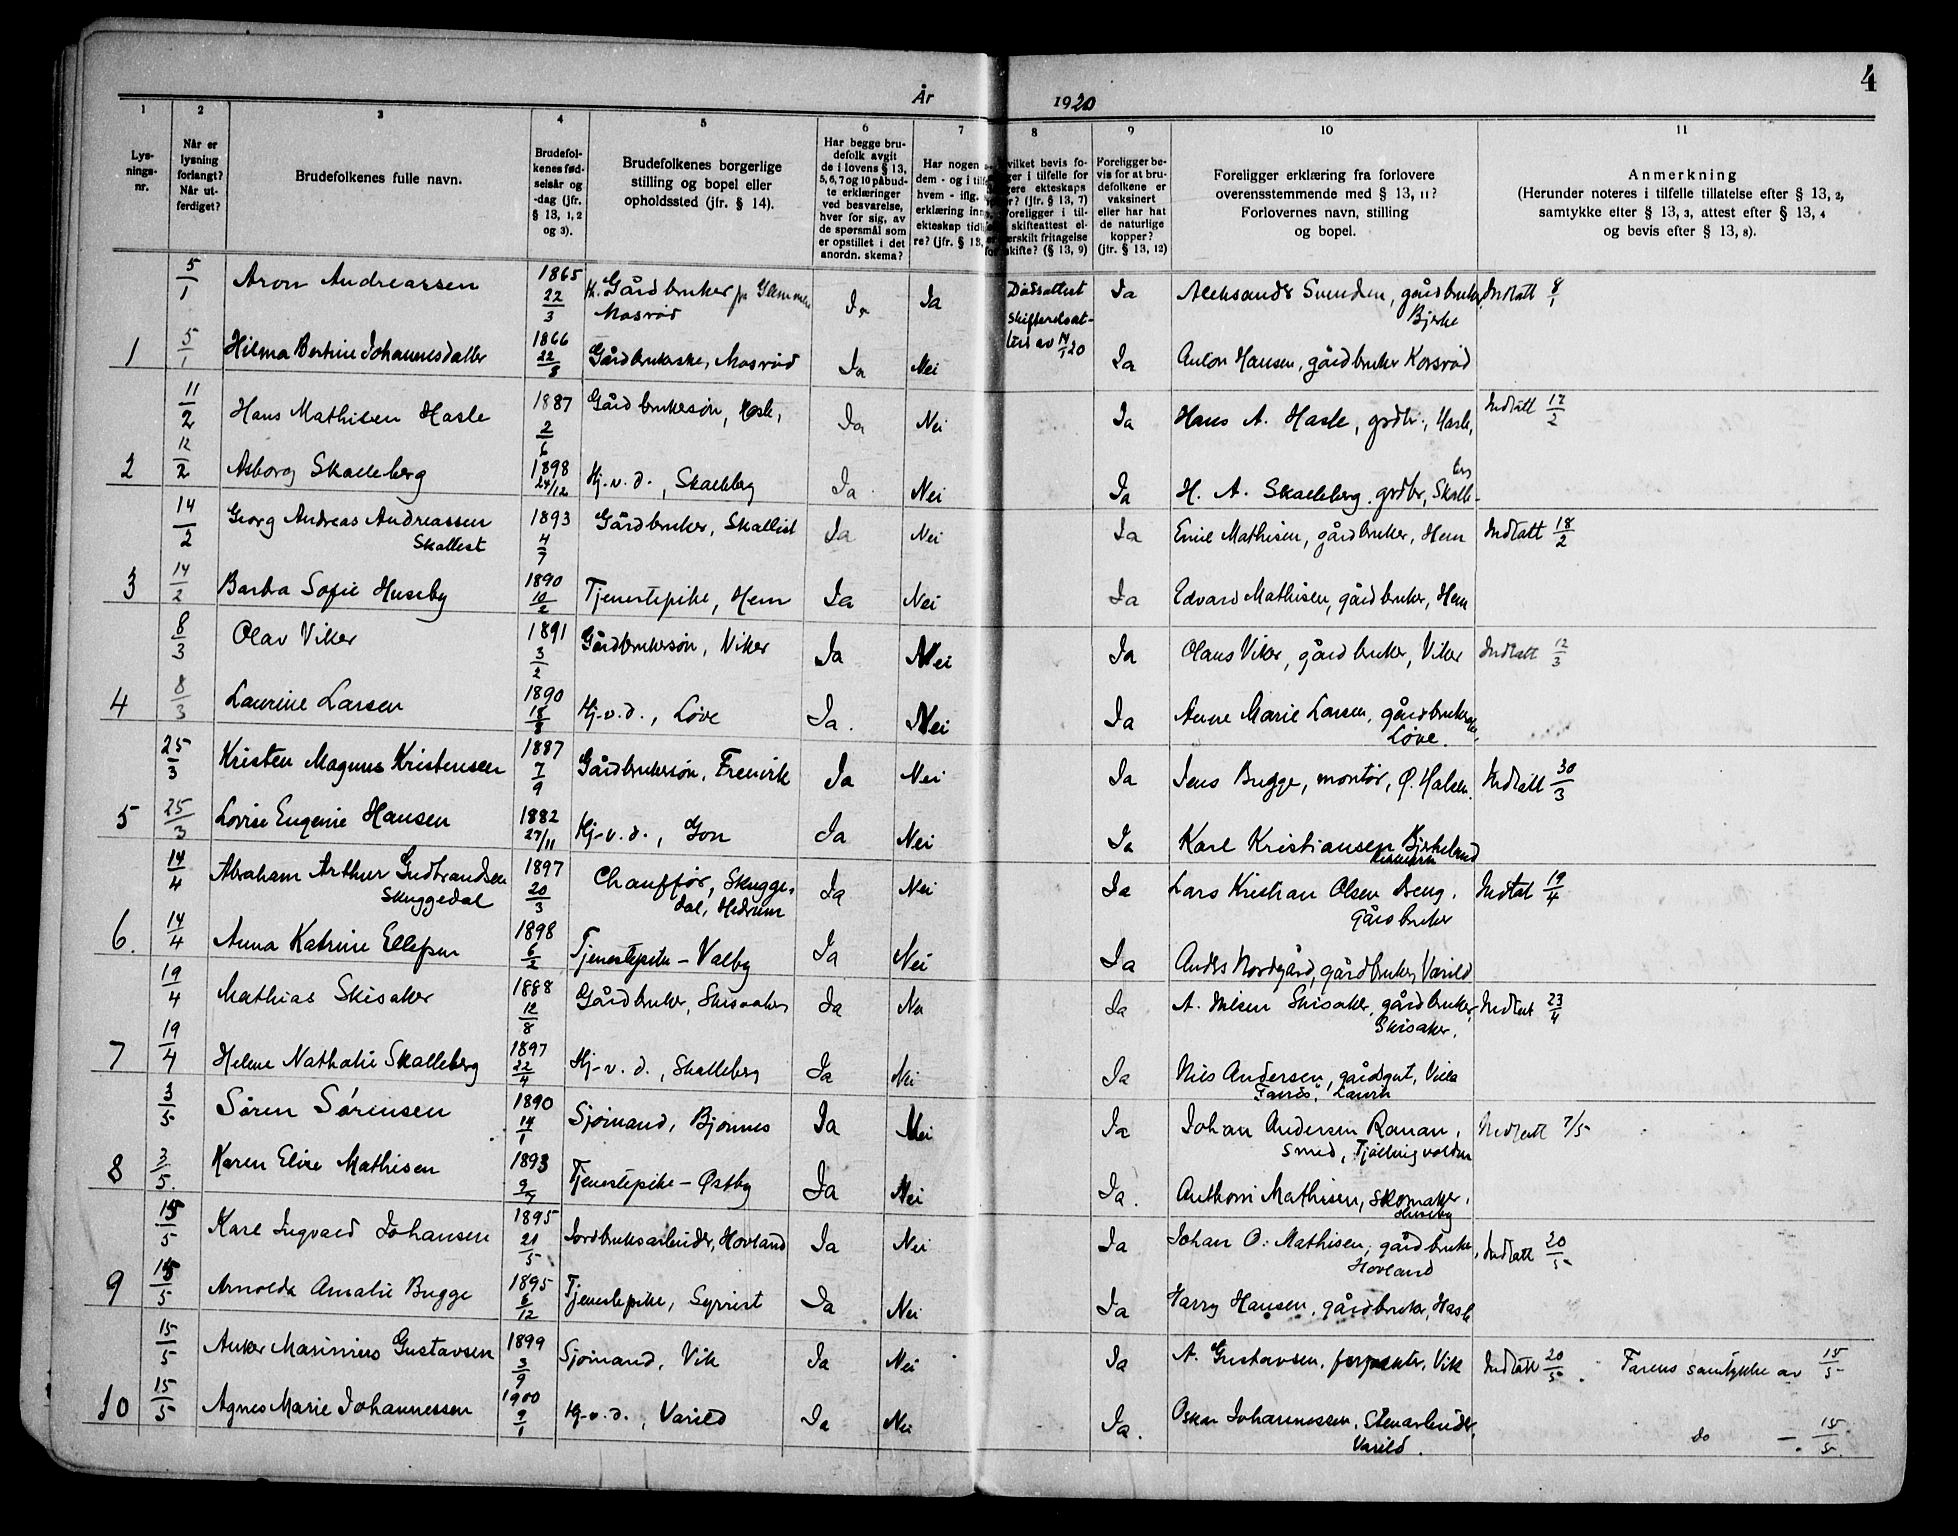 4
År 1920
1 2 3 4 5 6 7 8 9 10 11
Lysningsnr.
Når er lysning forlangt? Når utferdiget?
Brudefolkenes fulle navn.
Brudefolkenes fødselsår og -dag (jfr. § 13, 1, 2 og 3).
Brudefolkenes borgerlige stilling og bopel eller opholdssted (jfr. § 14).
Har begge brudefolk avgit de i lovens § 13, 5, 6, 7 og 10 påbudte erklæringer ved besvarelse, hver for sig, av de spørsmål som er opstillet i det anordn. skema?
Har nogen
dem - og i
hvem - iflg.
erklæring
ekteskap
re? (jfr. § 13,
vilket bevis fo-
ger i tilfelle for
ere ekteskaps
r? (jfr. § 13, 7)
Foreligger i til-
skifteattest el-
erskilt fritagelse
skifte? (§ 13, 9)
Foreligger bevis for at brudefolkene er vaksinert eller har hat de naturlige kopper? (jfr. § 13, 12)
Foreligger erklæring fra forlovere overensstemmende med § 13, 11? Forlovernes navn, stilling og bopel.
Anmerkning
(Herunder noteres i tilfelle tillatelse efter § 13, 2,
samtykke efter § 13, 3, attest efter § 13, 4
og bevis efter § 13, 8).
5/1 Aron Andreassen 1865 22/3 Gårdbruker Mosrød Ja Ja Dødsattest Ja Aleksander Svendsen, gårdbruker, Bjerke Indtatt 8/1
1 5/1 Hilma Bertine Johannesdatter 1866 22/8 Gårdbrukerske, Mosrød Ja Nei Ja Anton Hansen, gårdbruker Korsrød
11/2 Hans Mathisen Hasle 1887 2/6 Gårdbrukersøn, Hasle, Ja Nei Ja Hans A. Hasle, grdbr., Hasle, Indtatt 17/2
2 12/2 Asborg Skalleberg 1898 24/12 Hj.v.d., Skalleberg Ja Nei Ja H. A. Skalleberg grdbr, Skalleberg
14/2 Georg Andreas Andreassen Skallist 1893 4/7 Gårdbruker, Skallist Ja Nei Ja Emil Mathisen, gårdbruker, Hem Indtatt 18/2
3 14/2 Barba Sofie Huseby 1890 10/2 Tjenestepike, Hem Ja Nei Ja Edvard Mathisen, gårdbruker, Hem
8/3 Olav Viker 1891 3/2 Gårdbrukersøn, Viker Ja Nei Ja Olaus Viker, gårdbruker, Viker Indtatt 12/3
4 8/3 Laurine Larsen 1890 18/8 Hj-v.d., Løve Ja. Nei Ja Anne Marie Larsen, Løve.
25/3 Kristen Magnus Kristensen 1887 7/9 Gårdbrukersøn, Fremvik Ja Nei Ja Jens Bugge, montør, Ø. Halsen. Indtatt 30/3
5 25/3 Lovise Eugenie Hansen 1882 27/11 Hj-v.d., Gon Ja Nei Ja Karl Kristiansen Bjrkelund
14/4 Abraham Arthur Gudbrandsen Skuggedal 1897 20/3 Chauffør, Skuggedal, Hedrum Ja Nei Ja Lars Kristian Olsen Berg, Gårdbruker Indtat 19/4
6. 14/4 Anna Katrine Ellefsen 1898 6/2 Tjenestepike - Valby Ja Nei Ja Anders Nordgård, gårdbruker, Varild
19/4 Mathias Skisaker 1888 12/8 Gårdbruker, Skisaaker Ja Nei Ja A. Nilsen Skisaker, gårdbruker, Skisaker. Indtat 23/4
7 19/4 Helene Nathalie Skalleberg 1897 22/4 Hj-v.d., Skalleberg Ja Nei Ja Nils Andersen, gårdsgut, Villa
3/5 Søren Sørensen 1890 14/1 Sjømand, Bjønnes Ja Nei Ja Johan Andersen Ranan, Smed, Tjøllingvolden Indtatt 7/5
8 3/5. Karen Elise Mathisen 1893 9/9 Tjenestepike - Østby Ja Nei Ja. Anthoni Mathisen, skomaker, Huseby
15/5 Karl Ingvald Johansen 1895 21/5 Jordbruksarbeider, Hovland Ja Nei Ja Johan O. Mathisen, gårdbruker, Hovland Indtatt 20/5
9 15/5 Arnolda Amalie Bugge 1895 6/12 Tjenestepike, Syrrist Ja Nei Ja Harry Hansen, gårdbruker, Hasle
15/5 Anker Marinius Gustavsen 1899 3/9 Sjømand, Vik Ja Nei Ja A. Gustavsen, Vik Indtatt 20/5. Farens samtykke av 15/5
10 15/5 Agnes Marie Johannessen 1900 9/1 Hj-v.d., Varild Ja Nei Ja. Oskar Johannessen, Stenarbeider, Varild. do -. 15/5